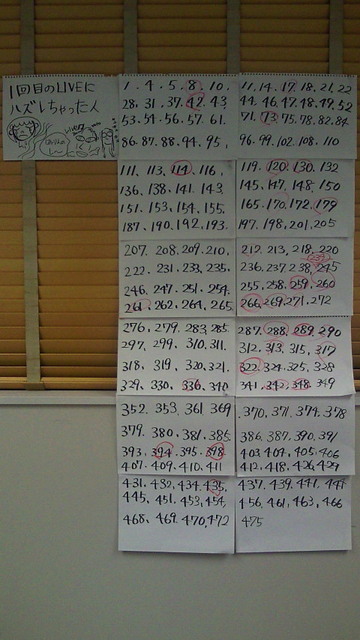 1回目のLIVEに
ハズしちゃった人
1. 4. 5. 8. 10.
28. 31. 37. 42. 43
53. 54. 56. 57. 61.
86. 87. 88. 94. 95.
11. 14. 17. 18. 21. 22
44. 46. 47. 48. 49. 52
71. 73. 75. 78. 82. 84.
96. 99. 102. 108. 110
111. 113. 114. 116.
136. 138. 141. 143.
151. 153. 154. 155.
187. 190. 192. 193.
119. 120. 130. 132
145. 147. 148. 150
165. 170. 172. 179
197. 198. 201. 205
207. 208. 209. 210.
222. 231. 233. 235.
246. 247. 251. 254.
261. 262. 264. 265
212. 213. 218. 220
236. 237 238. 245
255. 258. 259. 260
266. 269. 271. 272
276. 279. 283. 285
297. 299. 310. 311.
318. 319. 320. 321.
329. 330. 336. 340
287. 288. 289. 290
312. 313. 315. 317
322. 324. 325. 328
341. 342. 348. 349
352. 353. 361 369
379. 380. 381. 385
393. 394. 395. 398
407. 409. 410. 411
370. 371. 374. 378
386. 387. 390. 391
403. 404. 405. 406
412. 418. 426. 429
431. 432. 434. 435.
445. 451. 453. 454.
468. 469. 470. 472
437. 439. 441. 444
456. 461. 463. 466
475